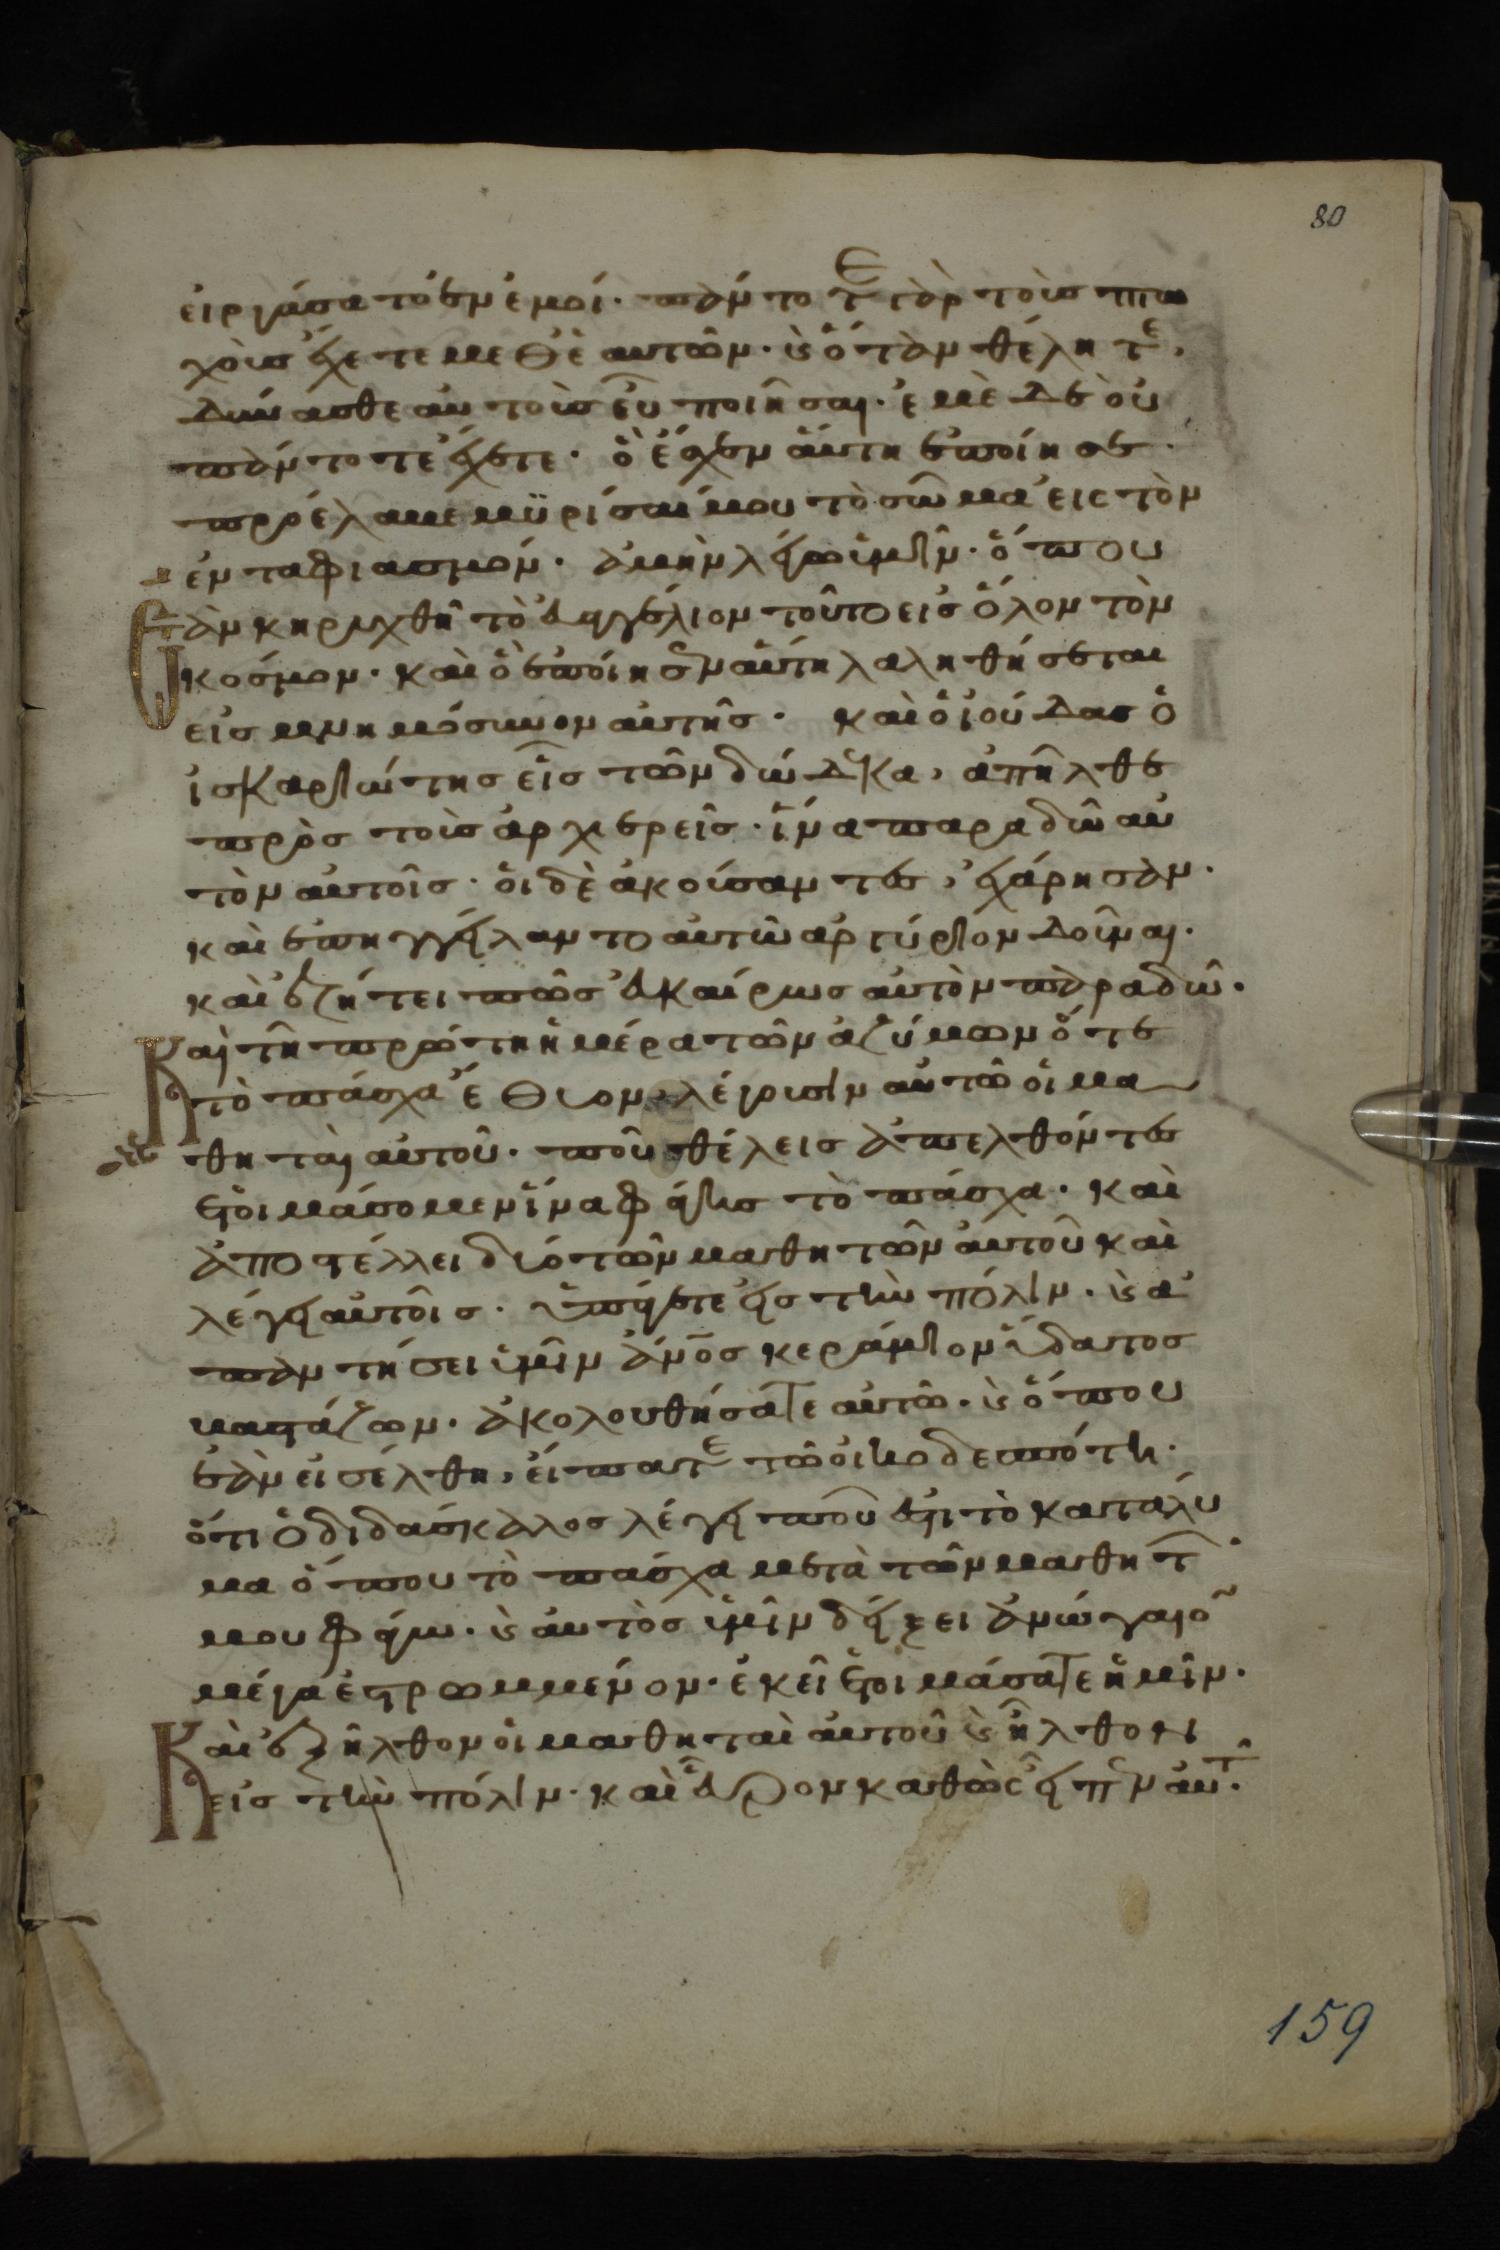 80
εἰργάσατο ἐν ἐμοί· πάντοτε γὰρ τοὺς πτω
χοὺς ἔχετε μεθ' ἑαυτῶν· κ ὅταν θέλητε,
δύνασθε αὐτοὺς εὖ ποιῆσαι· ἐμὲ δὲ οὐ
πάντοτε ἔχετε· ὃ ἔσχεν αὕτη ἐποίησε·
προέλαβε μυρίσαι μου τὸ σῶμα εἰς τὸν
ἐνταφιασμόν· ἀμὴν λέγω ὑμῖν· ὅπου
ἐὰν κηρυχθῆ τὸ εὐαγγέλιον τοῦτο εἰς ὅλον τὸν
κόσμον· καὶ ὃ ἐποίησεν αὕτη λαληθήσεται
εἰς μνημόσυνον αὐτῆς· καὶ ὁ ἰούδας ὁ
ἰσκαριώτης εἷς τῶν δώδεκα, ἀπῆλθε
πρὸς τοὺς ἀρχιερεῖς· ἵνα παραδῶ αὐ
τὸν αὐτοῖς· οἱ δὲ ἀκούσαντες, ἐχάρησαν·
καὶ ἐπηγγείλαντο αὐτῶ ἀργύριον δοῦναι·
καὶ ἐζήτει πῶς εὐκαίρως αὐτὸν παραδῶ·
Καὶ τῆ πρώτη ἡμέρα τῶν ἀζύμων ὅτε
τὸ πάσχα ἔθυον, λέγουσιν αὐτῶ οἱ μα
θηταὶ αὐτοῦ· ποῦ θέλεις ἀπελθόντες
ἑτοιμάσομεν ἵνα φάγης τὸ πάσχα· καὶ
ἀποστέλλει δύο τῶν μαθητῶν αὐτοῦ καὶ
λέγει αὐτοῖς· ὑπάγετε εἰς τὴν πόλιν· κ ἀ
παντήσει ὑμῖν ἄνος κεράμιον ὕδατος
βαστάζων· ἀκολουθήσατε αὐτῶ· κ ὅπου
ἐὰν εἰσέλθη, εἴπατε τῶ οἰκοδεσπότη·
ὅτι ὁ διδάσκαλος λέγει ποῦ ἐστι τὸ κατάλυ
μα ὅπου τὸ πάσχα μετὰ τῶν μαθητ
μου φάγω· κ αὐτὸς ὑμῖν δείξει ἀνώγαιο
μέγα ἐστρωμμένον· ἐκεῖ ἑτοιμάσατε ἡμῖν·
Καὶ ἐξῆλθον οἱ μαθηταὶ αὐτοῦ κ ἦλθον
εἰς τὴν πόλιν· καὶ εὗρον καθὼς εἶπεν αὐτ·
159